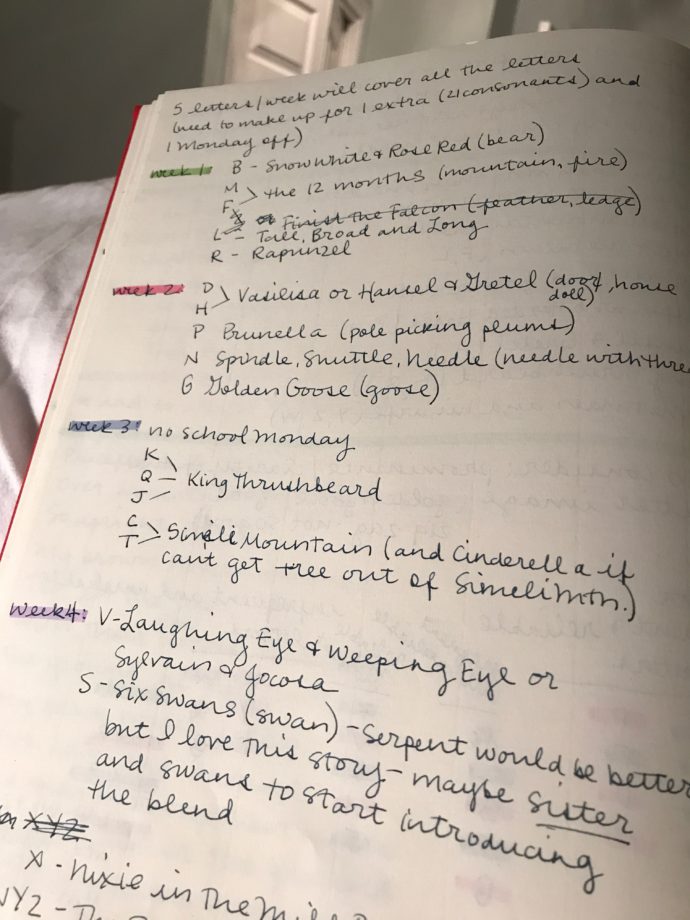 5 letters/week will cover all the letters
(need to make up for 1 extra (21 consonants) and
1 Monday off)
week 1 B - Snow White & Rose Red (bear)
M
F > the 12 months (mountain, fire)
Finist the Falcon (feather, ledge)
L - Tall, Broad and Long
R - Rapunzel
week 2: D
H > Vasilisa or Hansel & Gretel (door, house
doll)
P Brunella (pole picking plums)
N Spindle, Shuttle, Needle (needle with
G Golden Goose (goose)
week 3: no school Monday
K
Q - King Thrushbeard
J
C
T > Simeli Mountain (and Cinderella if
cant get tree out of Simeli Mtn.)
Week 4: V - Laughing Eye & Weeping Eye or
Sylvain & Jocosa
S - Six Swans (swan) - Serpent would be better
but I love this story - maybe sister
and swans to start introducing
the blend
XYZ
X - Nixie in the Mill
YZ - The